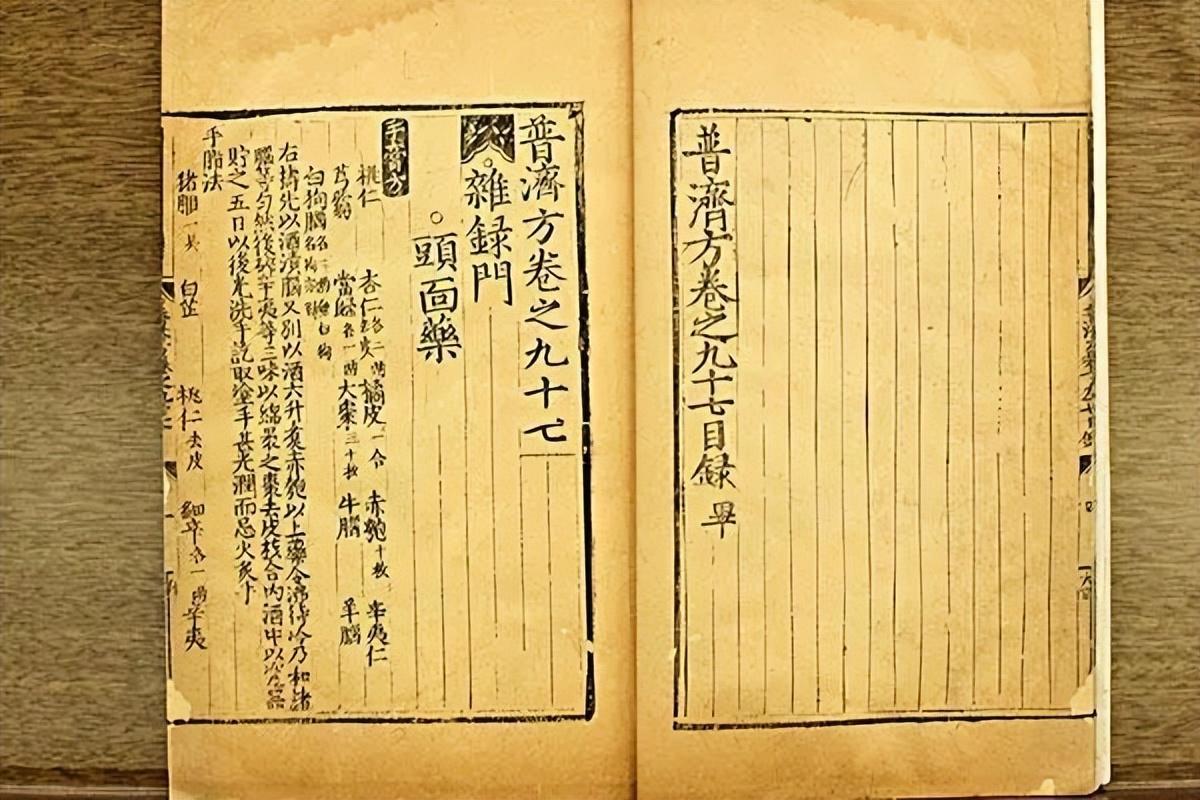 普濟方卷之九十七目録
畢
普濟方卷之九十七
雜録門
頭面藥
手膏方
桃仁 杏仁 橘皮 赤匏十枚 辛夷仁
芎藭 當歸各一兩 大棗三十枚 牛腦 羊腦
白狗腦
右擣先以酒漬腦又別以酒六升煮赤匏以上藥令沸待冷乃和諸
腦等勻然後辛夷等三味以綿裹之棗去皮核合内酒中以瓷器
貯之五日以後先洗手訖取塗手甚光潤而忌火炙
手脂法
猪胆一具 白芷 桃仁去皮 細辛各一兩 辛夷